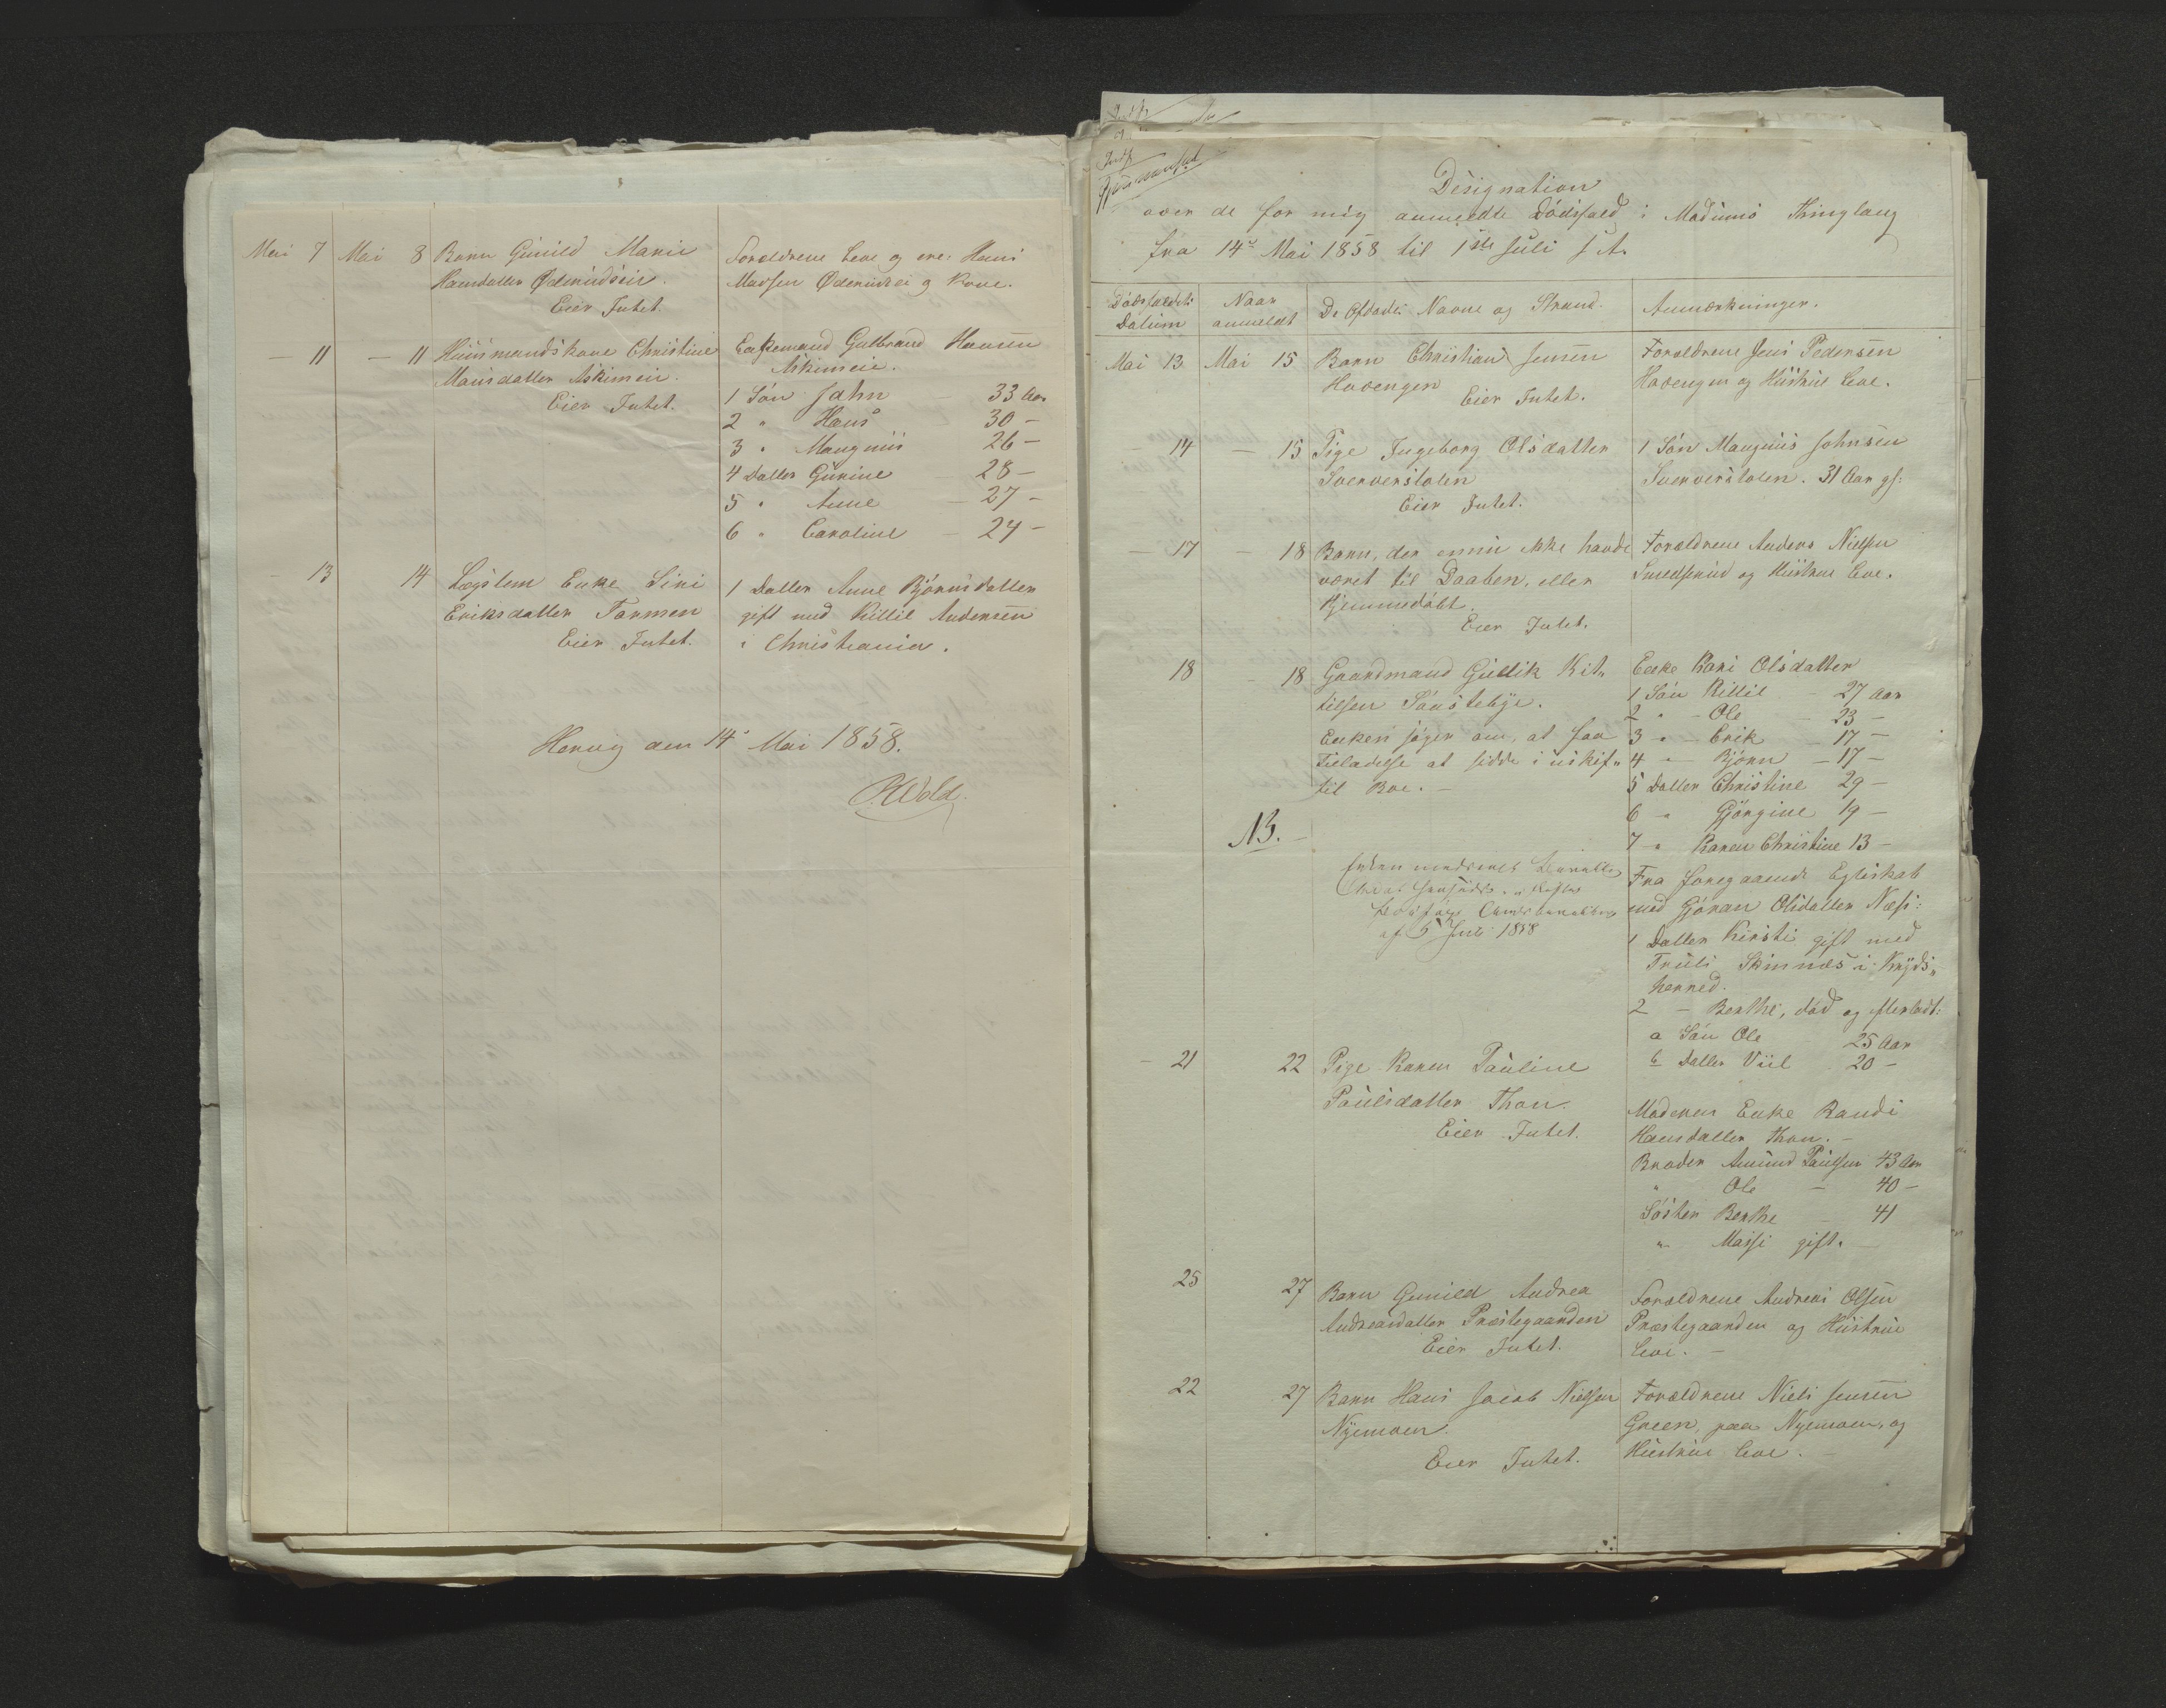 Mai 7 Mai 8 Barn Gunild Marie
Hansdatter Ødemudseie.
Eier Intet.
Forældrene leve og ere: Hans
Madsen Ødemudsei og Kone.
— 11 — 11 Huusmandskone Christine
Mansdatter Askimeie.
Eier Intet.
Enkemand Gulbrand Hansen
Askimeie.
1 Søn John — 33 Aar
2 " Hans 30 —
3 " Maugnus 26 —
4 Datter Gurine 28 —
5 " Anne — 27 —
6 " Caroline — 24 —
— 13 14 Lægslem Enke Siri
Eriksdatter Formoen
Eier Intet.
1 Datter Anne Bjørnsdatter
gift med Kittil Andersen
i Christiania.
Hervig den 14de Mai 1858.
RWold.
Designation
over de for mig anmeldte Dødsfald i Modums Thinglaug
fra 14de Mai 1858 til 1ste Juli s. A.
Dødsfaldets
Datum
Naar
anmeldt
De Afdødes Navne og Stand.
Anmærkninger.
Mai 13 Mai 15 Barn Christian Jensen
Hovengen
Eier Intet.
Forældrene Jens Pedersen
Hovengen og Hustrue leve.
— 14 — 15 Pige Ingeborg Olsdatter
Sververstolen
Eier Intet.
1 Søn Maugnus Johnsen
Sververstolen. 31 Aar gl:
— 17 — 18 Barn, der ennu ikke havde
været til Daaben, eller
hjemmedøbt.
Eier Intet.
Forældrene Anders Nielsen
og Hustrue leve.
18 — 18 Gaardmand Gullik Kit-
tilsen Sønsteby.
Enken søger om, at faa
Tilladelse at sidde i uskif-
tet Boe. —
Enke Kari Olsdatter
1 Søn Kittil — 27 Aar
2 " — Ole — 23 —
3 " — Erik — 17 —
4 " — Bjørn — 17 —
5 Datter Christine 29 —
6 — " Gjørgine 19 —
7 — " Karen Christine 13 —
NB. —
af 5 Juli 1858
Fra foregaaende Egteskab
med Gjøran Olsdatter Næs:
1 Datter Kirsti gift med
Truls Skinnes i Kryds-
herred.
2 — Berthe, død og efterladt:
a Søn Ole 25 Aar
b Datter Viil 20 —
— 21 22 Pige Karen Pauline
Paulsdatter Thon.
Eier Intet.
Moderen Enke Randi
Hansdatter Thon. —
Broder Amund Paulsen 43 Aar
" Ole — 40 —
Søster Berthe — 41
" Massi gift. —
25 27 Barn Gunild Andrea
Andreasdatter Præstegaarden
Eier Intet.
Forældrene Andreas Olsen
Præstegaarden og Hustrue
leve. —
22 27 Barn Hans Jacob Nielsen
Nyemoen.
Eier Intet.
Forældrene Niels Jensen
Green, paa Nyemoen, og
Hustrue leve. —